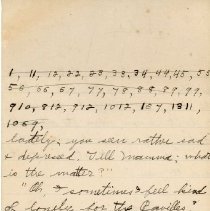 1, 11, 12, 22, 23, 33, 34, 44, 45, 55
56, 66, 67, 77, 78, 88, 89, 99,
910, 812, 912, 1012, 107, 1311,
1059,
lately, you seem rather sad
& depressed. Tell Mamma; what
is the matter?"
"Oh, I sometimes feel kind
of lonely for the Cavilles"